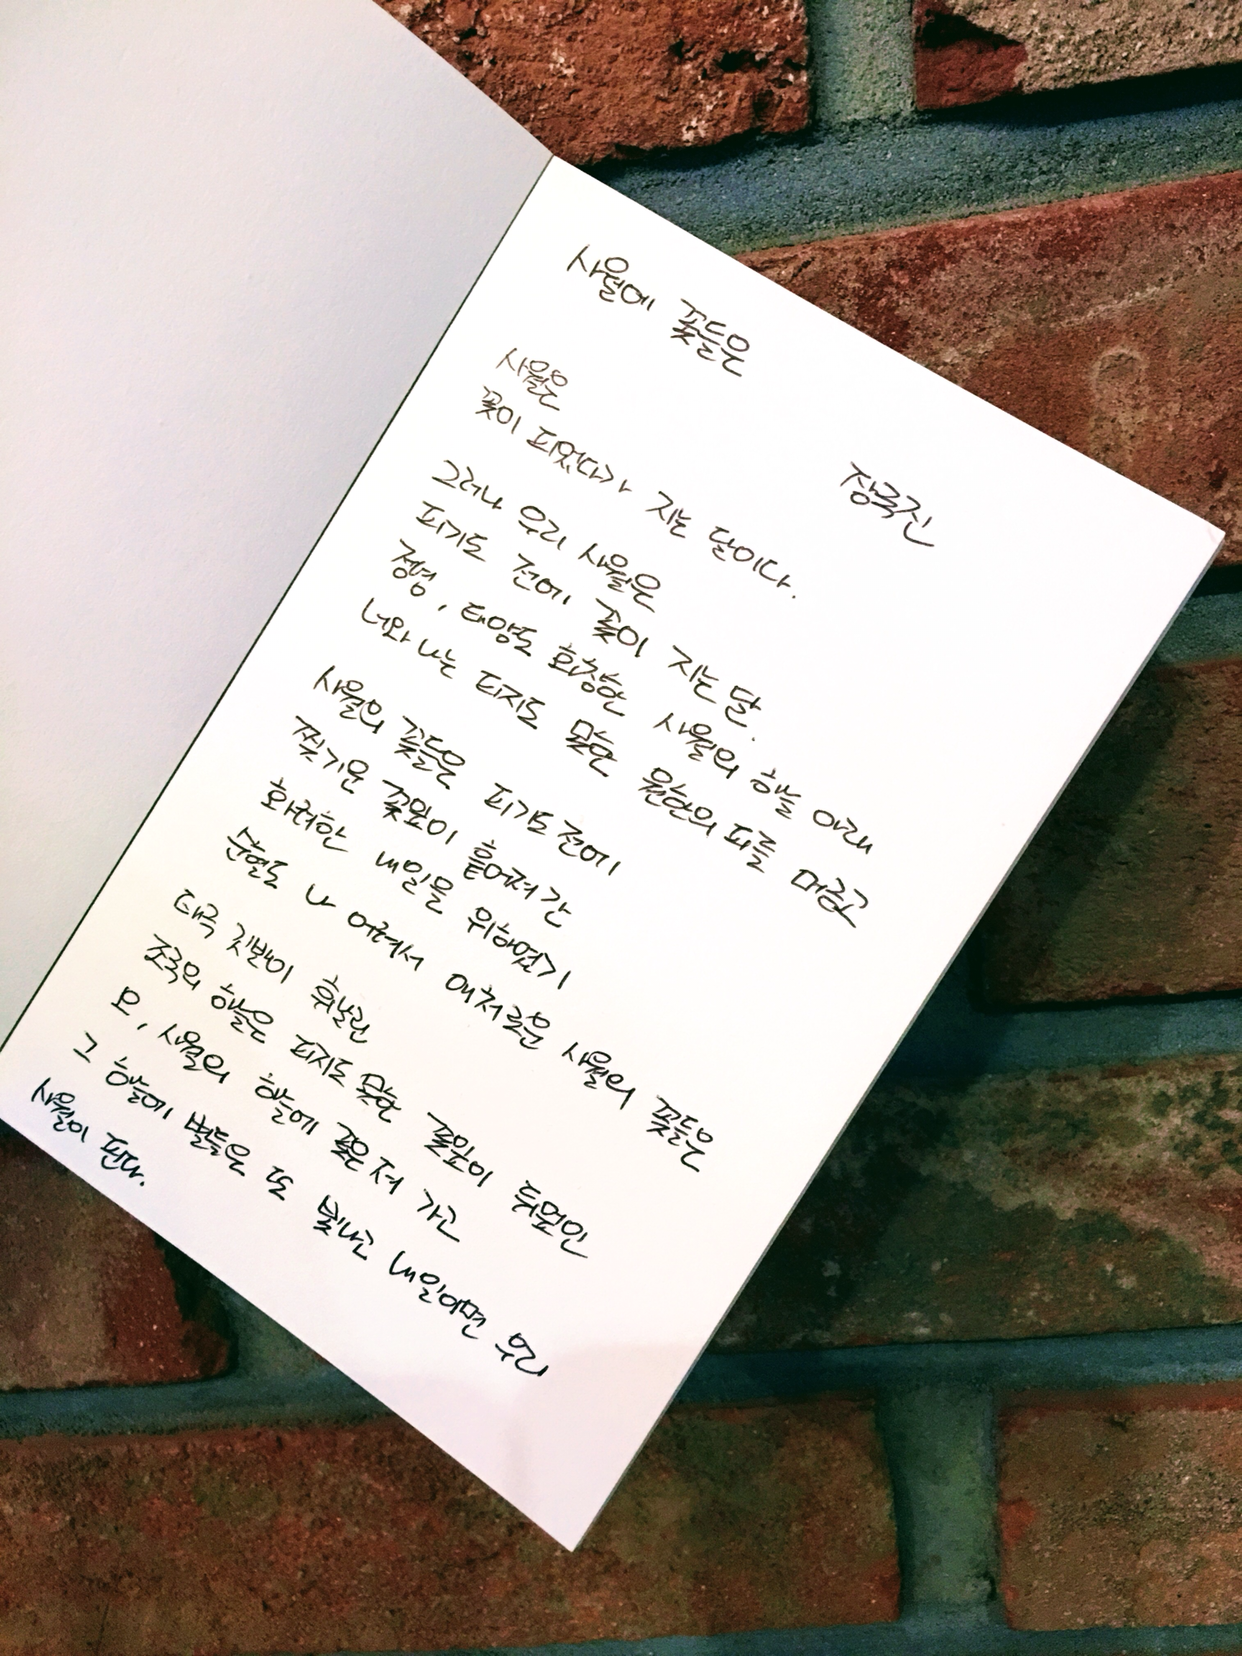 사월에 꽃들은
장국진
사월은
꽃이 피었다가 지는 달이다.
그러나 우리 사월은
피기도 전에 꽃이 지는 달.
정녕, 태양도 화창한 사월의 하늘 아래
너와 나는 피지도 못한 원한의 피를 머금고
사월의 꽃들은 피기도 전에
찢기운 꽃잎이 흩어져 간
화려한 내일을 위하였기
순혈도 나 어려서 애처로운 사월의 꽃들은
태극 깃발이 휘날린
조국의 하늘은 피지도 못한 꽃잎이 뒤덮인
오, 사월의 하늘에 꽃은 져 가고
그 하늘에 별들은 또 빛나고 내일이면 우리
사월이 핀다.